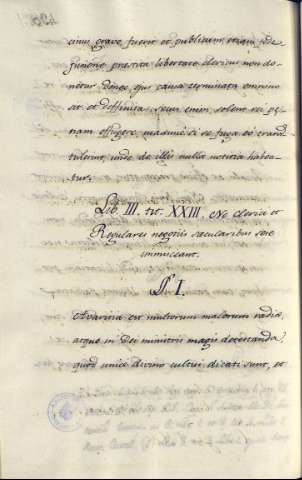 cinus grave fuerit et publicum, etiam
junione prestita libertate clericus non do-
netur donec, que causa terminata omnino
sit et deffinita. Secus enim solent
nam effugere, maxime si se fuga
tulerint, unde de illis nulla notitia habea-
tur.
Lib. III. tit. XXIII. Ne clerici et
Regulares negotiis secularibus sese
immisceant.
P.º I.
Avaritia est multorum malorum radix,
atque in Dei ministris magis detestanda,
quod unice divino cultui dicati sunt, et